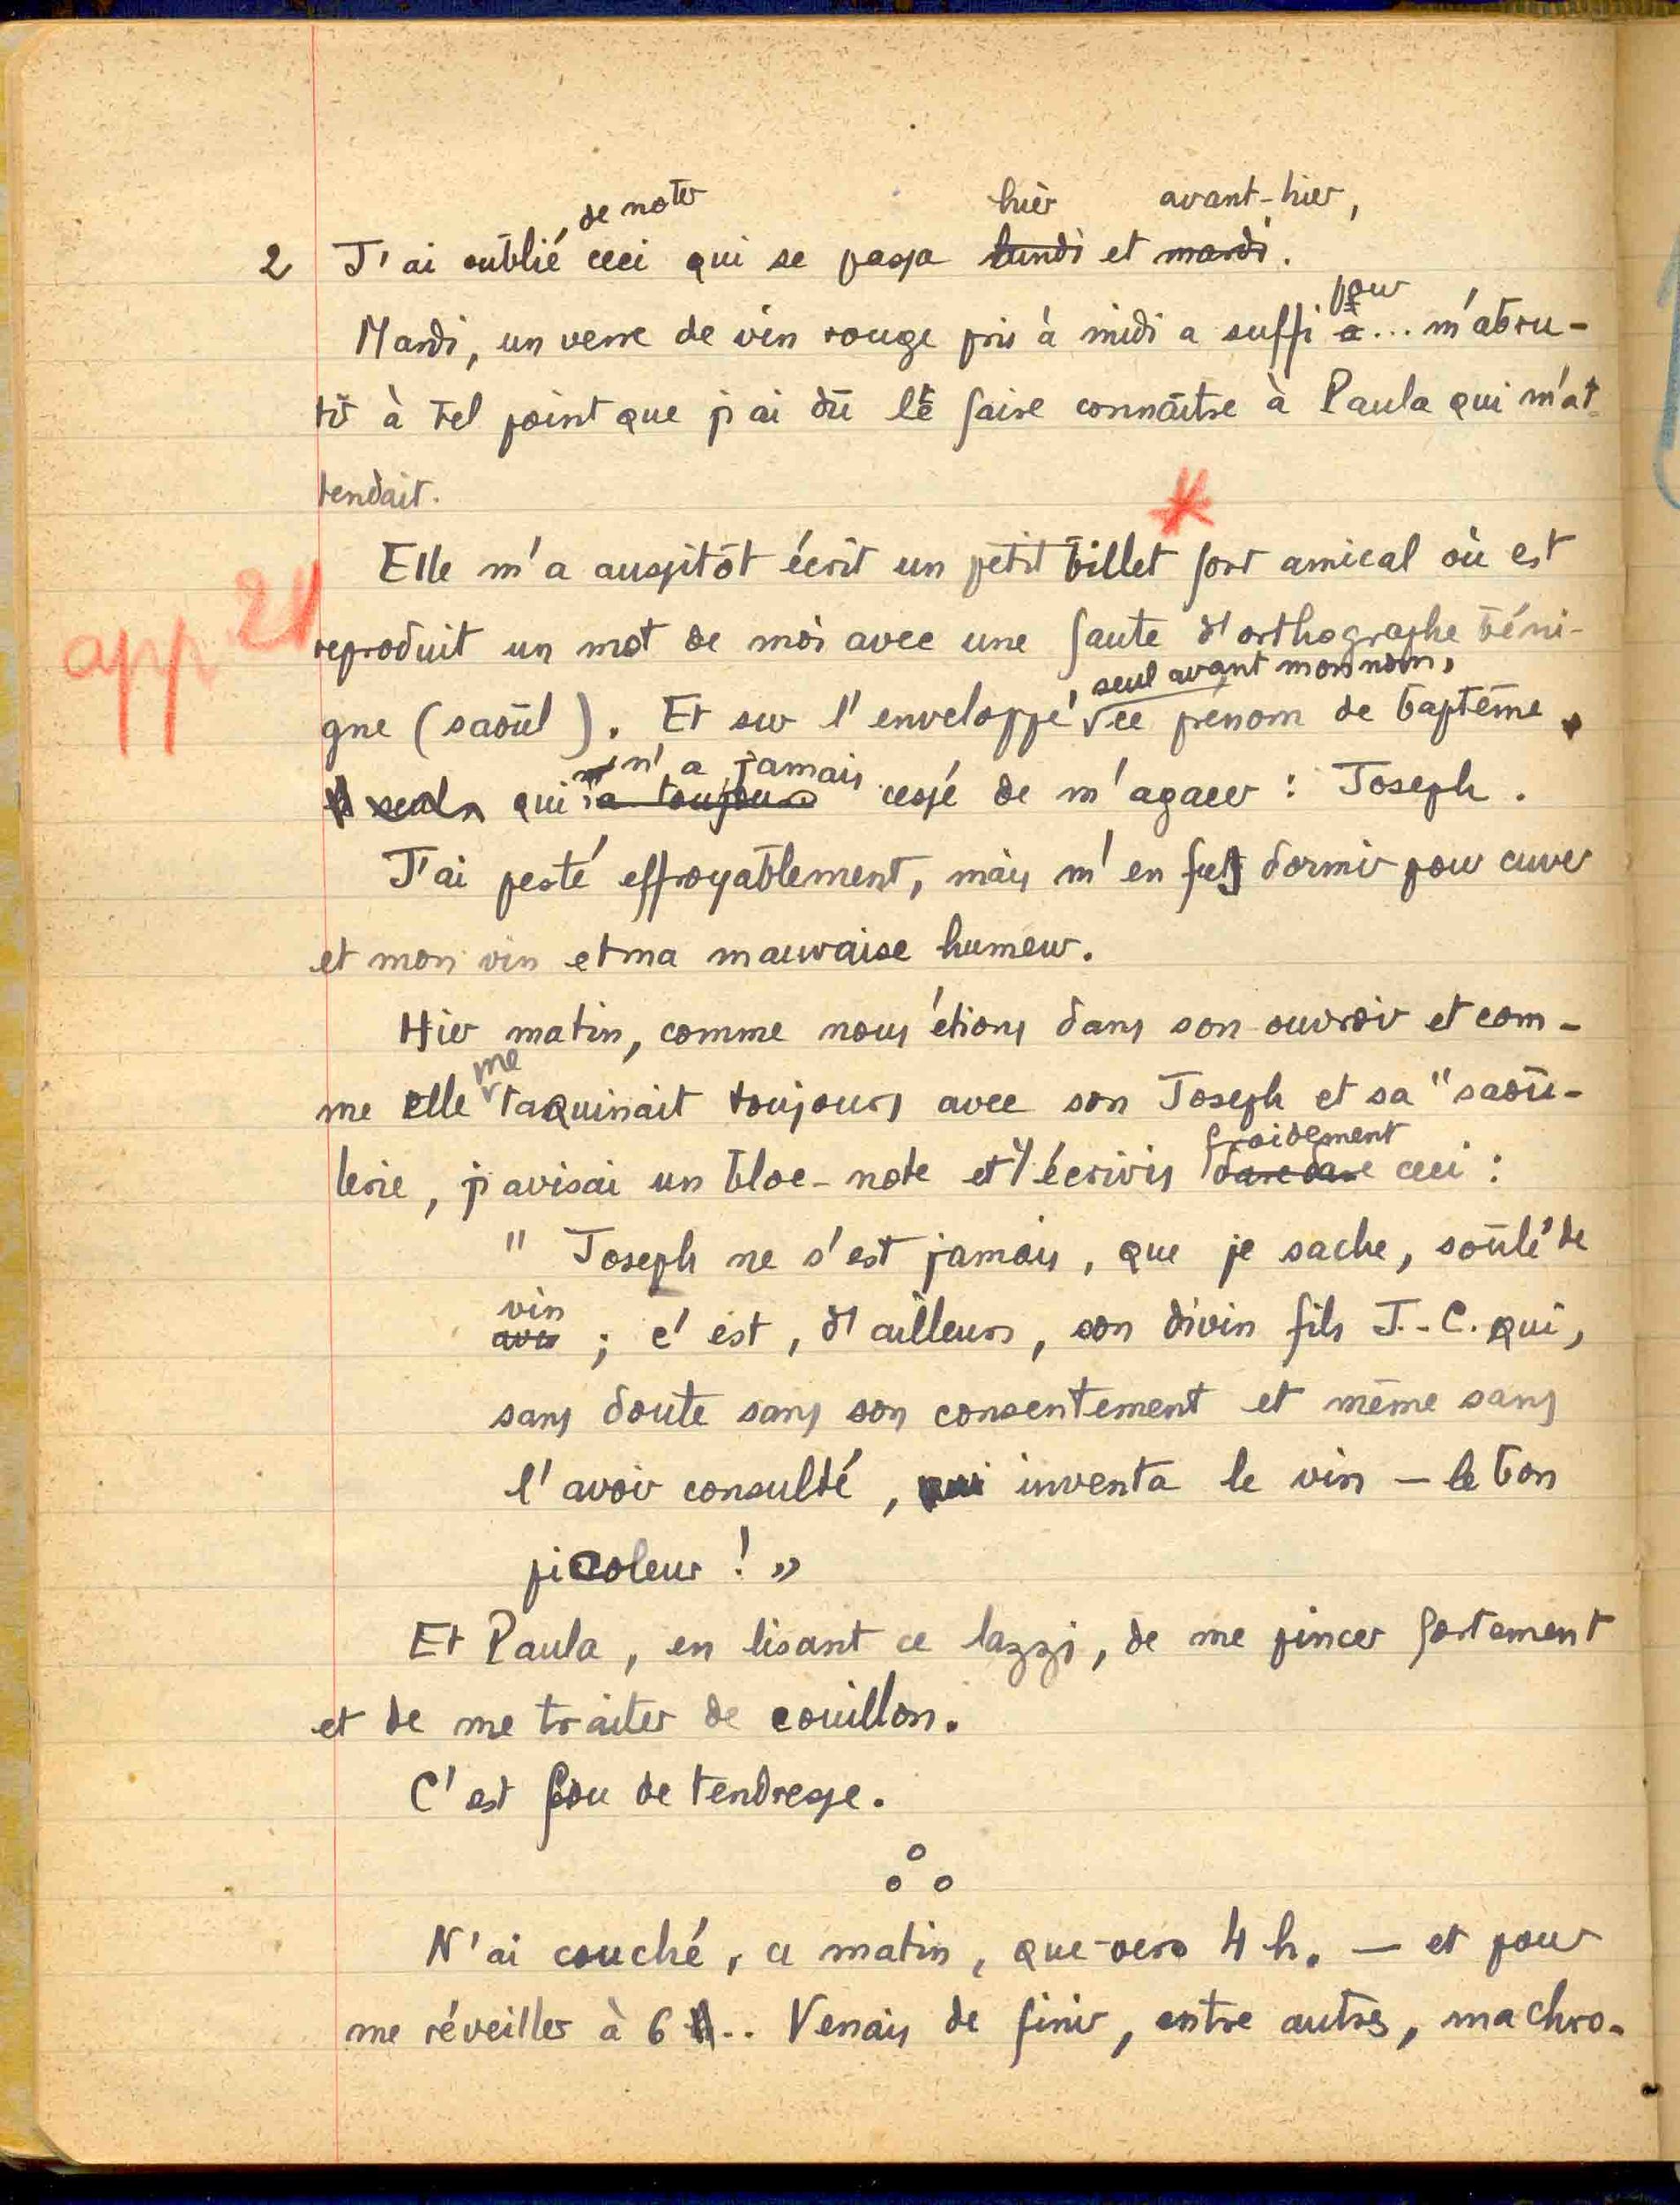 de noter hier avant-hier,
2 J'ai oublié ceci qui se passa lundi et mardi.
pour
Mardi, un verre de vin rouge pris à midi a suffi à... m'abru-
tir à tel point que j'ai dû le faire connaître à Paula qui m'at-
tendait.
Elle m'a aussitôt écrit un petit billet fort amical où est
app 21
reproduit un mot de moi avec une faute d'orthographe béni-
seul avant mon nom,
gne (saoûl). Et sur l'enveloppe, ce prénom de baptême
n'a jamais
seul qui a toujours cessé de m'agacer : Joseph.
J'ai pesté effroyablement, mais m'en fus dormir pour cuver
et mon vin et ma mauvaise humeur.
Hier matin, comme nous étions dans son ouvroir et com-
me
me elle taquinait toujours avec son Joseph et sa "saoû-
froidement
lerie, j'avisai un bloc-note et y écrivis dare dare ceci :
" Joseph ne s'est jamais, que je sache, soûlé de
vin
avec ; c'est, d'ailleurs, son divin fils J.-C. qui,
sans doute sans son consentement et même sans
l'avoir consulté, qui inventa le vin — le bon
picoleur ! »
Et Paula, en lisant ce lazzi, de me pincer fortement
et de me traiter de couillon.
C'est fou de tendresse.
N'ai couché, ce matin, que vers 4 h. — et pour
me réveiller à 6 h.. Venais de finir, entre autres, ma chro-